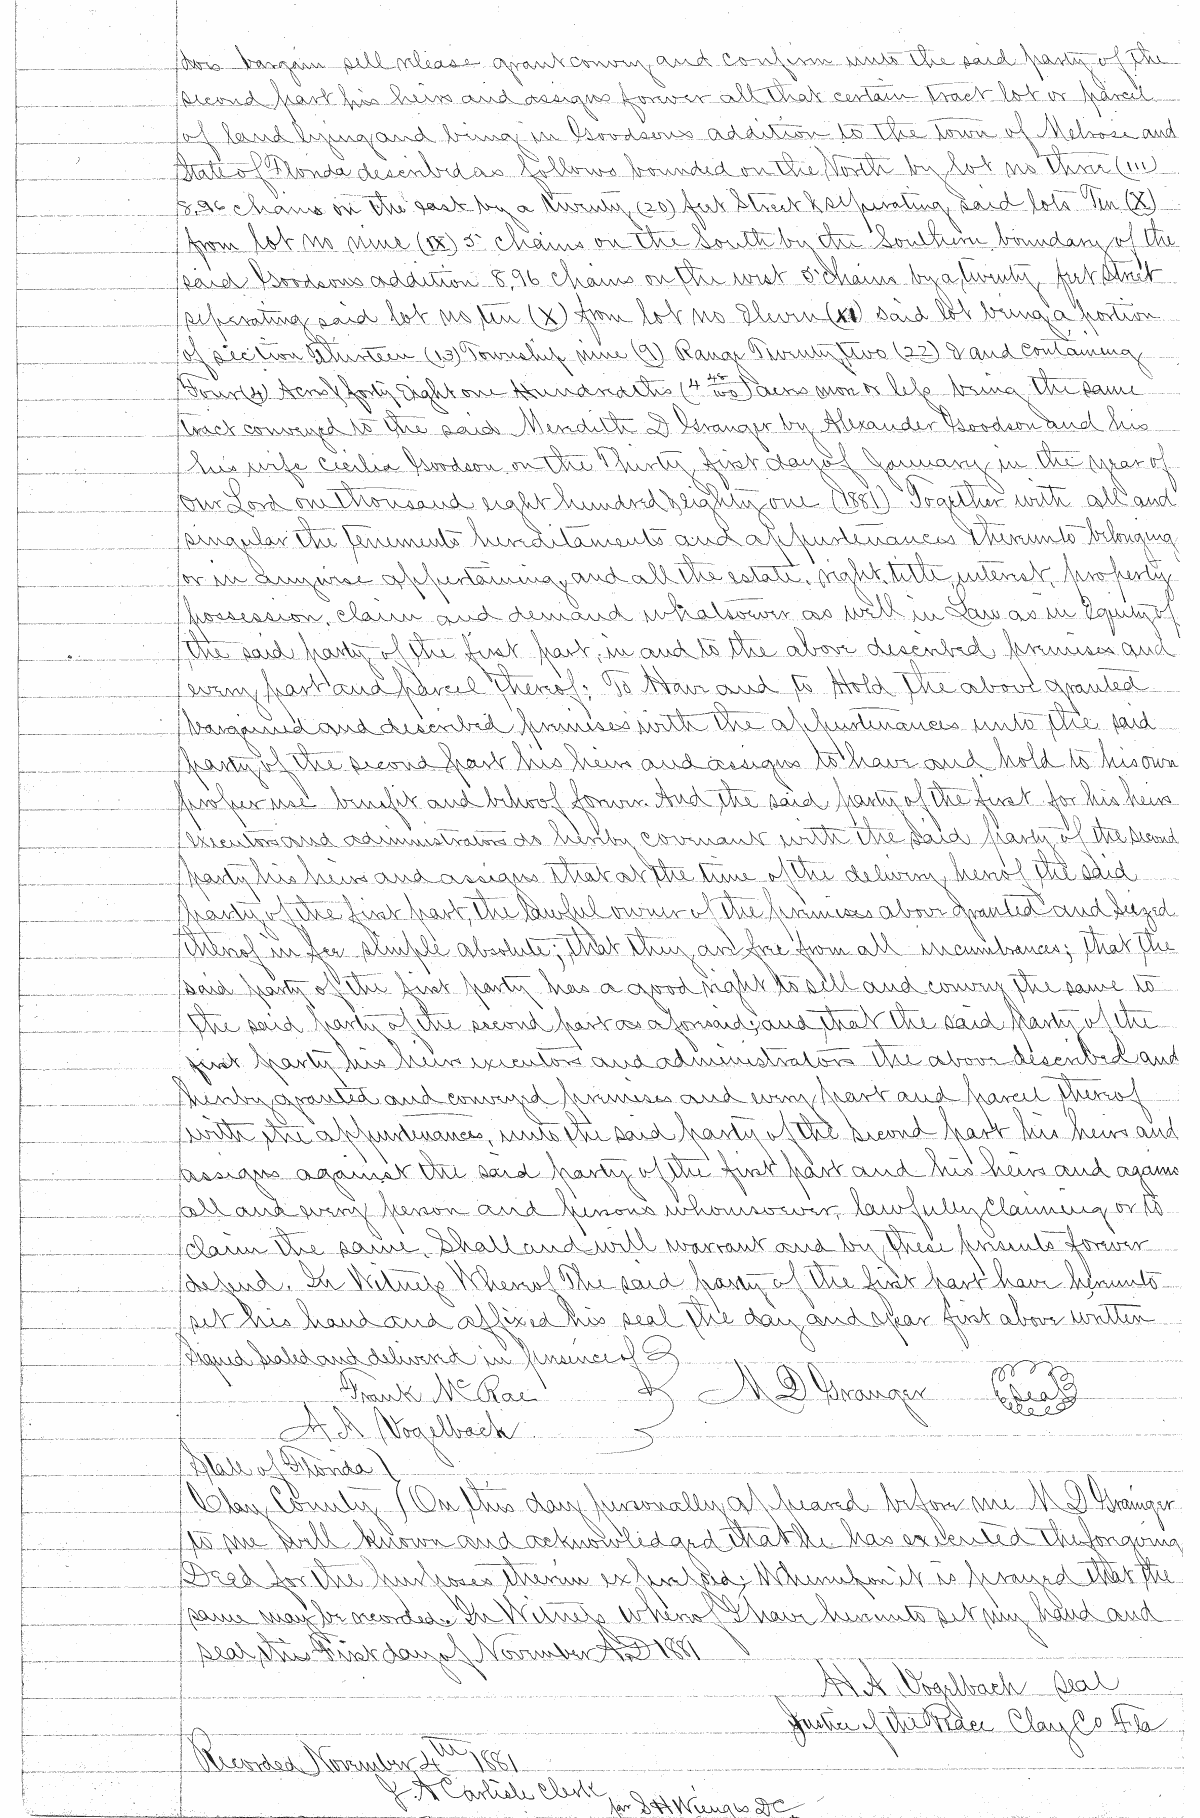 does bargain sell release grant convey and confirm unto the said party of the
second part his heirs and assigns forever all that certain tract lot or parcel
of land lying and being in Goodsons addition to the town of Melrose and
State of Florida described as follows bounded on the North by lot no three (111)
8.96 chains on the east by a twenty (20) feet Street & seperating said lots Ten (X)
from lot no nine (IX) 5 chains on the South by the Southern boundary of the
said Goodsons addition 8.96 chains on the west 5 chains by a twenty feet Street
seperating said lot no ten (X) from lot no Eleven (XI) said lot being a portion
of section Thirteen (13) Township nine (9) Range Twenty two (22) & and containing
Four (4) Acres & forty Eight one Hundredths (4 48/100) acres more or less being the same
tract conveyed to the said Meredith D Granger by Alexander Goodson and his
his wife Cecilia Goodson on the Thirty first day of January in the year of
our Lord on thousand eight hundred & eighty one (1881) Together with all and
singular the tenements hereditaments and appurtenances thereunto belonging
or in anywise appertaining, and all the estate, right, title, interest, property
possession, claim and demand whatsoever as well in Law as in Equity of
the said party of the first part, in and to the above described premises and
every part and parcel thereof; To Have and to Hold the above granted
bargained and described premises with the appurtenances unto the said
party of the second part his heirs and assigns to have and hold to his own
proper use benefit and behoof forever. And the said party of the first for his heirs
executors and administrators do hereby covenant with the said party of the second
party his heirs and assigns that at the time of the delivery hereof the said
party of the first part, the lawful owner of the premises above granted and seized
thereof in fee simple absolute; that they are free from all incumbrances; that the
said party of the first party has a good right to sell and convey the same to
the said party of the second part as aforesaid; and that the said party of the
first party his heirs executors and administrators the above described and
hereby granted and conveyed premises and every part and parcel thereof
with the appurtenances, unto the said party of the second part his heirs and
assigns against the said party of the first part and his heirs and agains
all and every person and persons whomsoever, lawfully claiming or to
claim the same. Shall and will warrant and by these presents forever
defend. In Witness Whereof The said party of the first part have hereunto
set his hand and affixed his seal the day and year first above written
Signed Sealed and delivered in presence of
Frank McRae M D Granger Seal
H A Vogelbach
State of Florida
Clay County On this day personally appeared before me M D Grainger
to me well known and acknowledged that he has executed the forgoing
Deed for the purposes therein expressed; Whereupon it is prayed that the
same may be recorded. In Witness Whereof I have hereunto set my hand and
seal, this First day of November A.D 1881
H A Vogelbach Seal
Justice of the Peace Clay Co Fla
Recorded November 4th 1881
J. A Carlisle Clerk
per S H DC